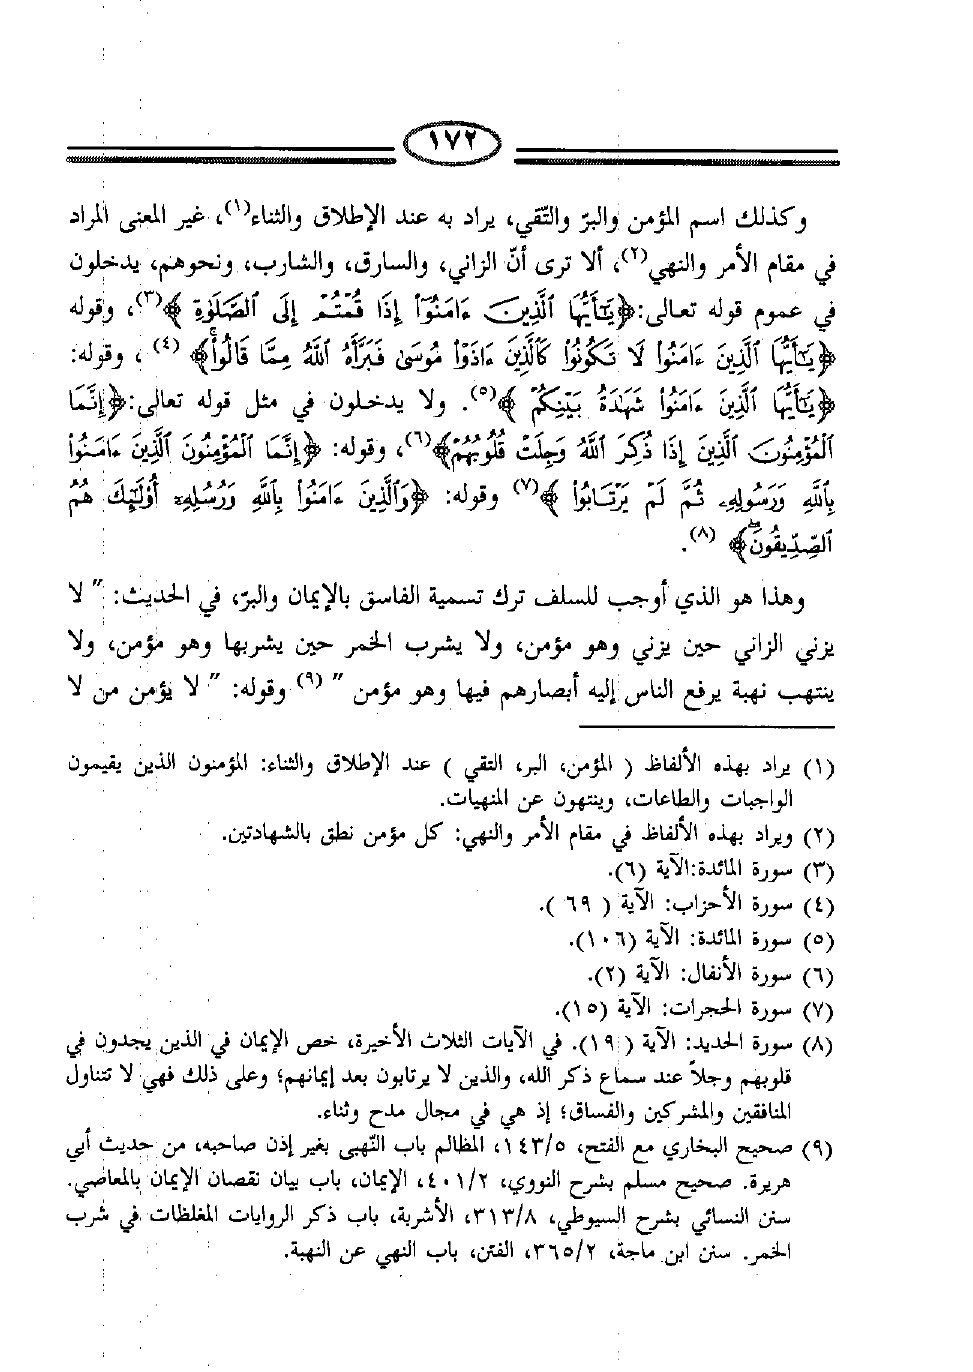 ١٧٢
وكذلك اسم المؤمن والبرّ والتّقي، يراد به عند الإطلاق والثناء(١)، غير المعنى المراد
في مقام الأمر والنهي(٢)، ألا ترى أنّ الزاني، والسارق، والشارب، ونحوهم، يدخلون
في عموم قوله تعالى:﴿يَٰٓأَيُّهَا ٱلَّذِينَ ءَامَنُوٓا۟ إِذَا قُمْتُمْ إِلَى ٱلصَّلَوٰةِ﴾(٣)، وقوله
﴿يَٰٓأَيُّهَا ٱلَّذِينَ ءَامَنُوا۟ لَا تَكُونُوا۟ كَٱلَّذِينَ ءَاذَوْا۟ مُوسَىٰ فَبَرَّأَهُ ٱللَّهُ مِمَّا قَالُوا۟ۚ﴾ (٤)، وقوله:
﴿يَٰٓأَيُّهَا ٱلَّذِينَ ءَامَنُوا۟ شَهَٰدَةُ بَيْنِكُمْ﴾(٥). ولا يدخلون في مثل قوله تعالى:﴿إِنَّمَا
ٱلْمُؤْمِنُونَ ٱلَّذِينَ إِذَا ذُكِرَ ٱللَّهُ وَجِلَتْ قُلُوبُهُمْ﴾(٦)، وقوله: ﴿إِنَّمَا ٱلْمُؤْمِنُونَ ٱلَّذِينَ ءَامَنُوا۟
بِٱللَّهِ وَرَسُولِهِۦ ثُمَّ لَمْ يَرْتَابُوا۟﴾(٧) وقوله: ﴿وَٱلَّذِينَ ءَامَنُوا۟ بِٱللَّهِ وَرُسُلِهِۦٓ أُو۟لَٰٓئِكَ هُمُ
ٱلصِّدِّيقُونَۖ﴾ (٨).
وهذا هو الذي أوجب للسلف ترك تسمية الفاسق بالإيمان والبرّ، في الحديث: " لا
يزني الزاني حين يزني وهو مؤمن، ولا يشرب الخمر حين يشربها وهو مؤمن، ولا
ينتهب نهبة يرفع الناس إليه أبصارهم فيها وهو مؤمن " (٩) وقوله: " لا يؤمن من لا
(١) يراد بهذه الألفاظ ( المؤمن، البر، التقي ) عند الإطلاق والثناء: المؤمنون الذين يقيمون
الواجبات والطاعات، وينتهون عن المنهيات.
(٢) ويراد بهذه الألفاظ في مقام الأمر والنهي: كل مؤمن نطق بالشهادتين.
(٣) سورة المائدة:الآية (٦).
(٤) سورة الأحزاب: الآية ( ٦٩ ).
(٥) سورة المائدة: الآية (١٠٦).
(٦) سورة الأنفال: الآية (٢).
(٧) سورة الحجرات: الآية (١٥).
(٨) سورة الحديد: الآية ( ١٩). في الآيات الثلاث الأخيرة، خص الإيمان في الذين يجدون في
قلوبهم وجلاً عند سماع ذكر الله، والذين لا يرتابون بعد إيمانهم؛ وعلى ذلك فهي لا تتناول
المنافقين والمشركين والفساق؛ إذ هي في مجال مدح وثناء.
(٩) صحيح البخاري مع الفتح، ١٤٣/٥، المظالم باب النّهبى بغير إذن صاحبه، من حديث أبي
هريرة. صحيح مسلم بشرح النووي، ٤٠١/٢، الإيمان، باب بيان نقصان الإيمان بالمعاصي.
سنن النسائي بشرح السيوطي، ٣١٣/٨، الأشربة، باب ذكر الروايات المغلظات في شرب
الخمر. سنن ابن ماجة، ٣٦٥/٢، الفتن، باب النهي عن النهبة.